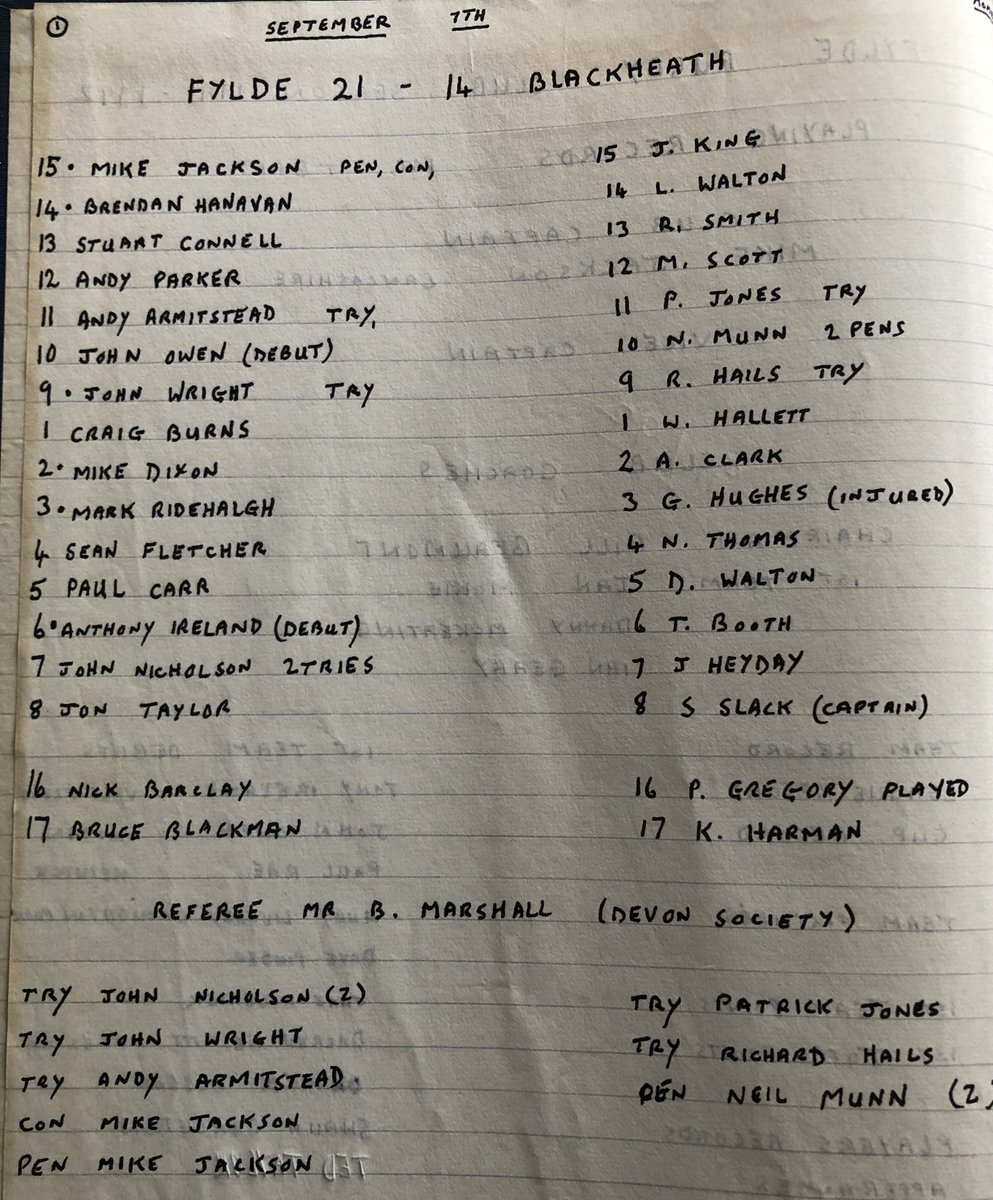 1
SEPTEMBER 7TH
FYLDE 21 - 14 BLACKHEATH
15 • MIKE JACKSON PEN, CON,
14 • BRENDAN HANAVAN
13 STUART CONNELL
12 ANDY PARKER
11 ANDY ARMITSTEAD TRY,
10 JOHN OWEN (DEBUT)
9 • JOHN WRIGHT TRY
1 CRAIG BURNS
2 • MIKE DIXON
3 • MARK RIDEHALGH
4 SEAN FLETCHER
5 PAUL CARR
6 • ANTHONY IRELAND (DEBUT)
7 JOHN NICHOLSON 2 TRIES
8 JON TAYLOR
16 NICK BARCLAY
17 BRUCE BLACKMAN
15 J. KING
14 L. WALTON
13 R. SMITH
12 M. SCOTT
11 P. JONES TRY
10 N. MUNN 2 PENS
9 R. HAILS TRY
1 W. HALLETT
2 A. CLARK
3 G. HUGHES (INJURED)
4 N. THOMAS
5 D. WALTON
6 T. BOOTH
7 J HEYDAY
8 S SLACK (CAPTAIN)
16 P. GREGORY PLAYED
17 K. HARMAN
REFEREE MR B. MARSHALL (DEVON SOCIETY)
TRY JOHN NICHOLSON (2)
TRY JOHN WRIGHT
TRY ANDY ARMITSTEAD.
CON MIKE JACKSON
PEN MIKE JACKSON
TRY PATRICK JONES
TRY RICHARD HAILS
PEN NEIL MUNN (2)